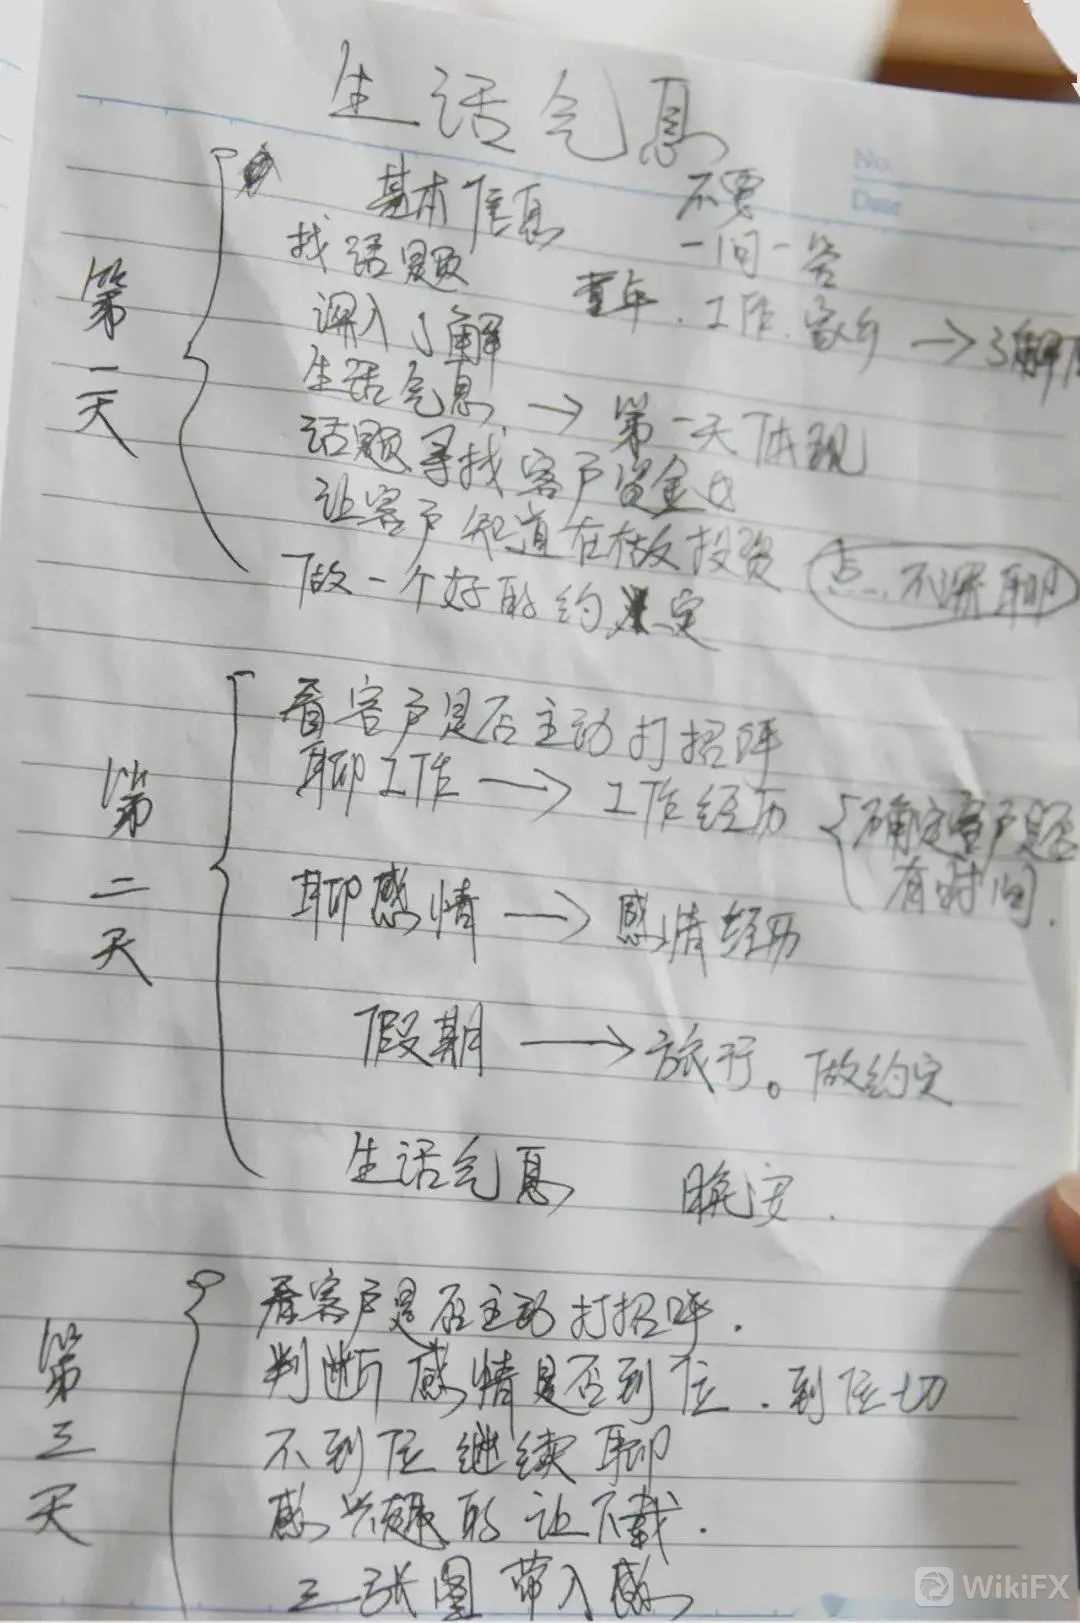 生话气息
No.
Date
第一天
基本信息 不要
一问一答
找话题
童年、工作、家乡 → 了解
深入了解
生话气息 → 第一天体现
话题寻找客户资金
让客户知道在做投资
点.. 不深聊
做一个好的约定
第二天
看客户是否主动打招呼
聊工作 → 工作经历
确定客户是否
有时间.
聊感情 → 感情经历
假期 → 旅行。做约定
生话气息 晚安.
第三天
看客户是否主动打招呼.
判断感情是否到位.到位切
不到位继续聊
感兴趣的让下载.
三张图带入感
WikiFX